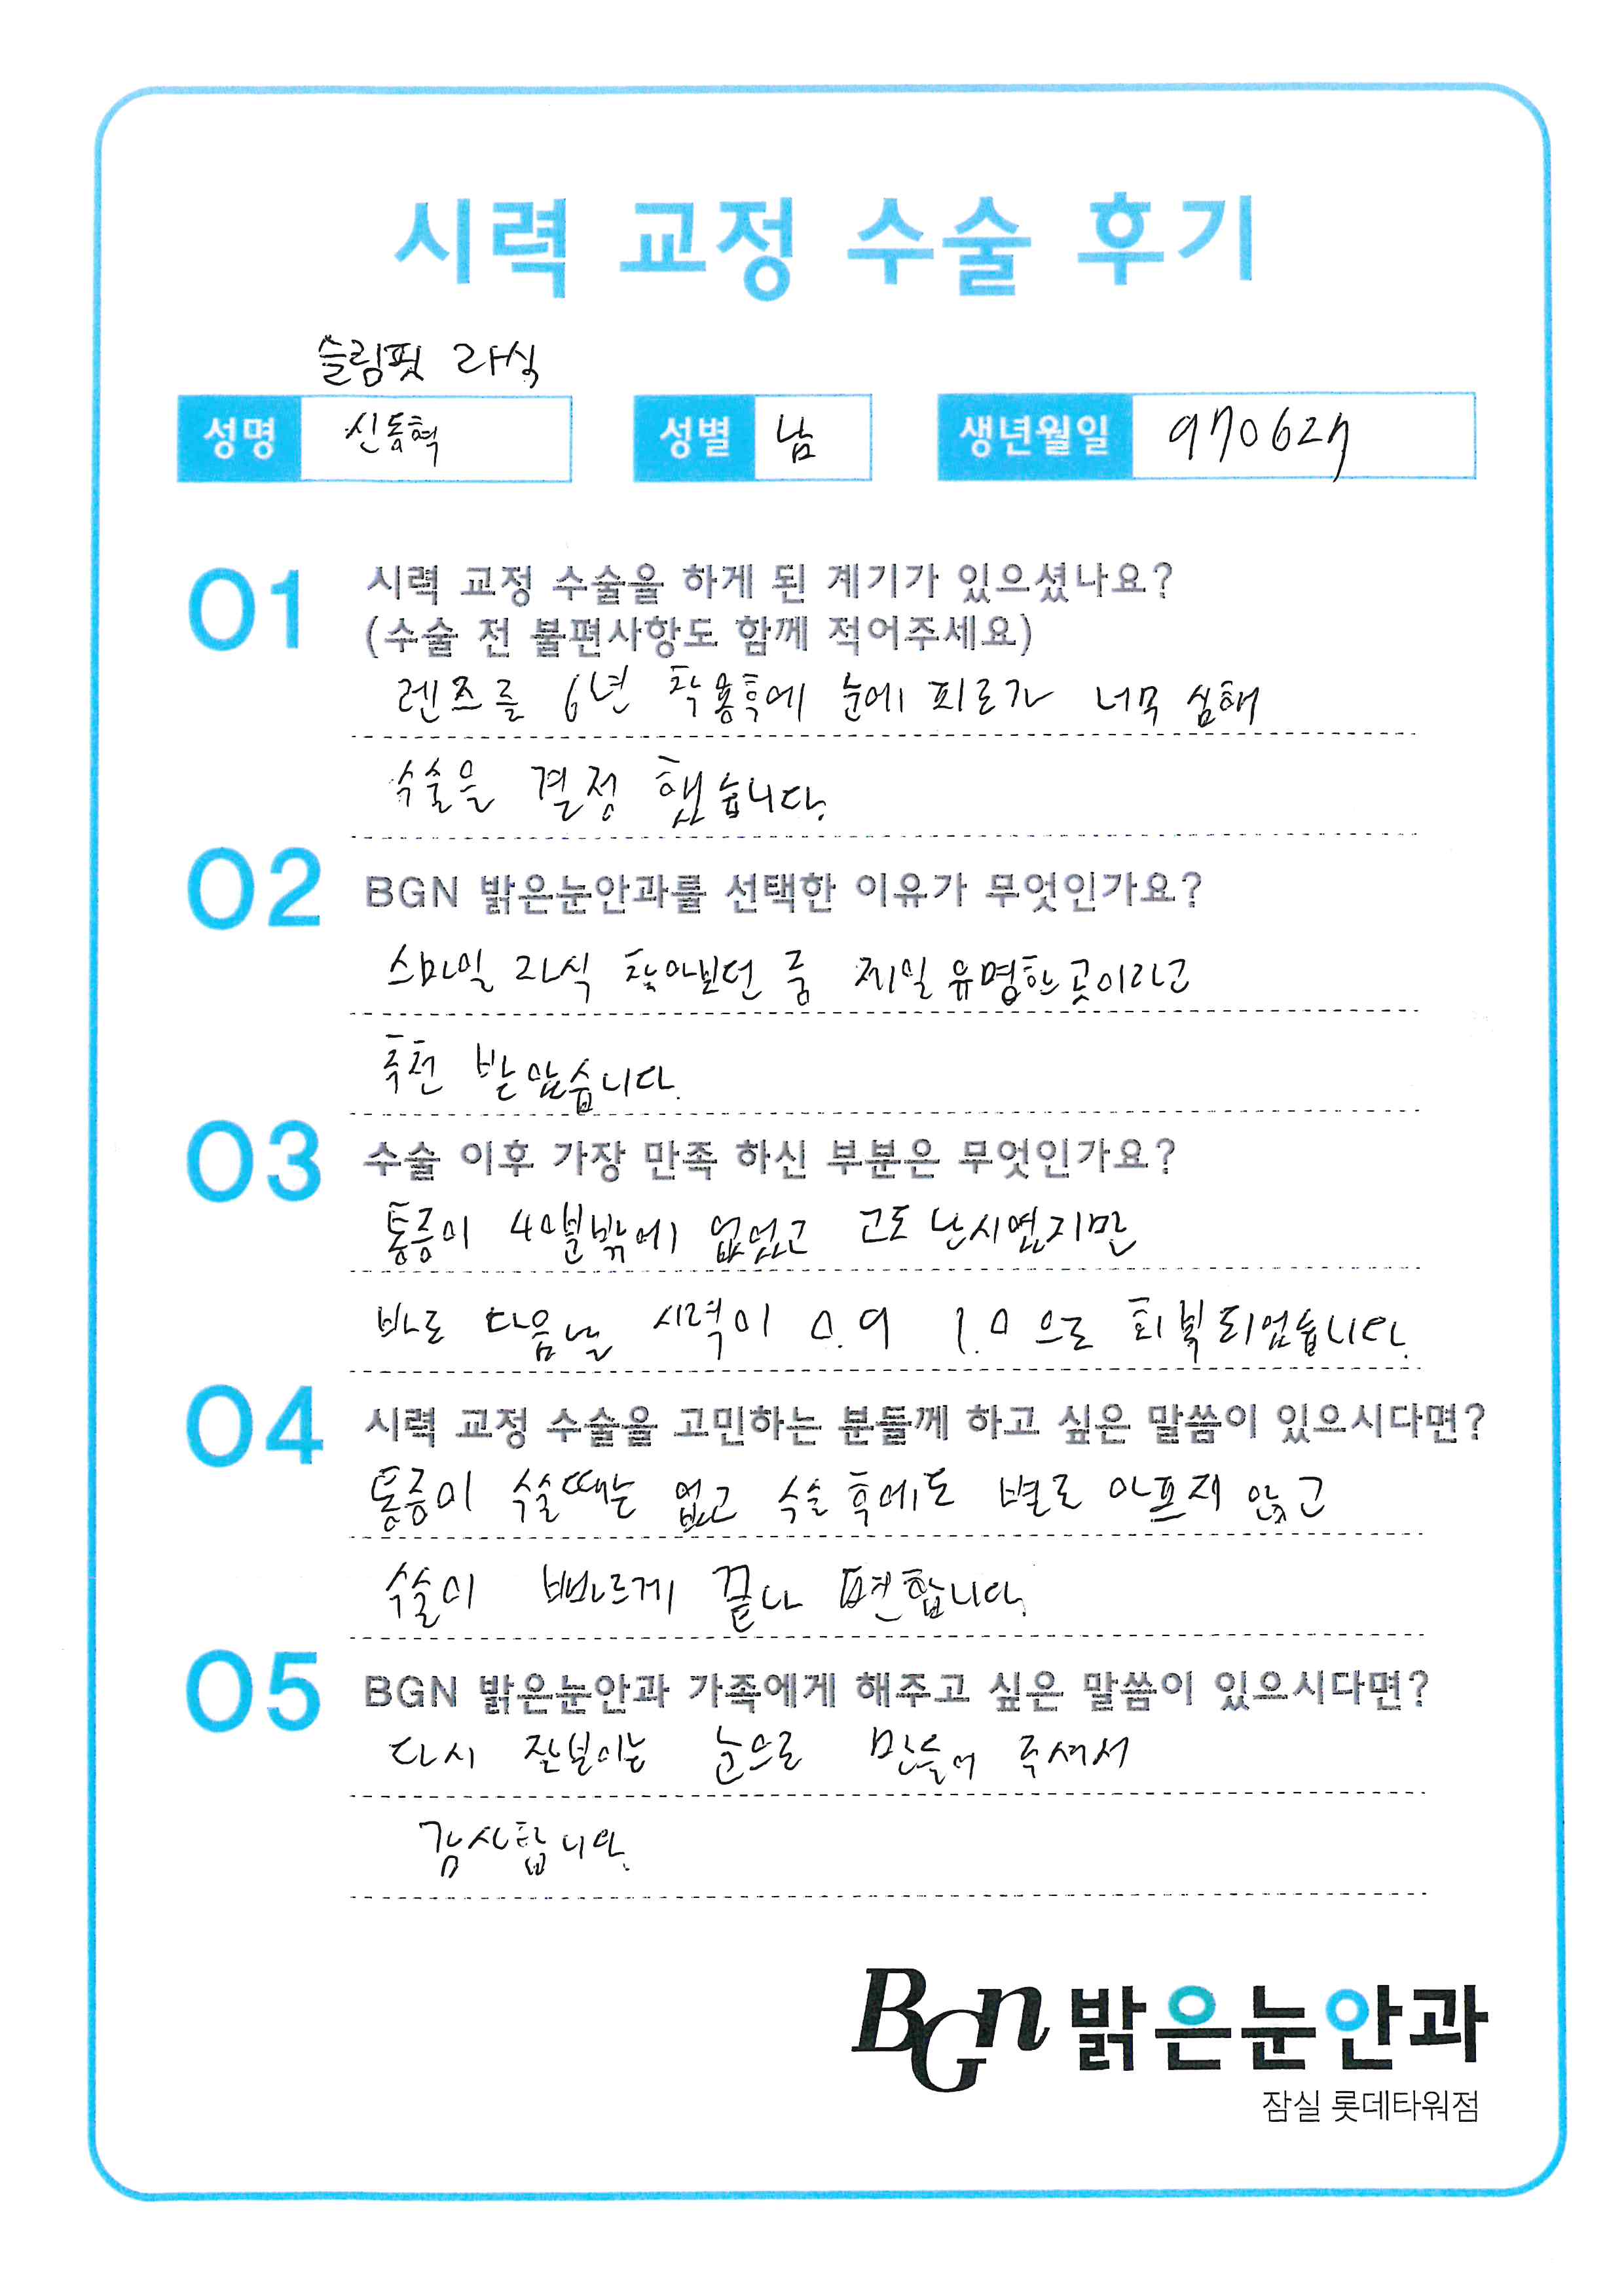 시력 교정 수술 후기
슬림핏 라식
성명 신동혁 성별 남 생년월일 970627
01 시력 교정 수술을 하게 된 계기가 있으셨나요?
(수술 전 불편사항도 함께 적어주세요)
렌즈를 6년 착용후에 눈에 피로가 너무 심해
수술을 결정 했습니다.
02 BGN 밝은눈안과를 선택한 이유가 무엇인가요?
스마일 라식 찾아보던 중 제일 유명한 곳이라고
추천 받았습니다.
03 수술 이후 가장 만족 하신 부분은 무엇인가요?
통증이 40분밖에 없었고 고도 난시였지만
바로 다음날 시력이 0.9 1.0 으로 회복되었습니다.
04 시력 교정 수술을 고민하는 분들께 하고 싶은 말씀이 있으시다면?
통증이 수술때는 없고 수술 후에도 별로 아프지 않고
수술이 빠르게 끝나 편합니다.
05 BGN 밝은눈안과 가족에게 해주고 싶은 말씀이 있으시다면?
다시 잘보이는 눈으로 만들어 주셔서
감사합니다.
BGn 밝은눈안과
잠실 롯데타워점